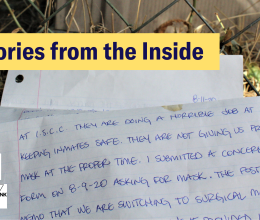 ories from the Inside
8/11/20
AT I.S.C.C THEY ARE DOING A HORRIBLE JOB AT
KEEPING INMATES SAFE. THEY ARE NOT GIVING US PR
MASK AT THE PROPER TIME. I SUBMITTED A CONCERN
FORM ON 8-9-20 ASKING FOR MASK. THE POST
MEMO THAT WE ARE SWITCHING TO SURGICAL M
PROVIDED
NK